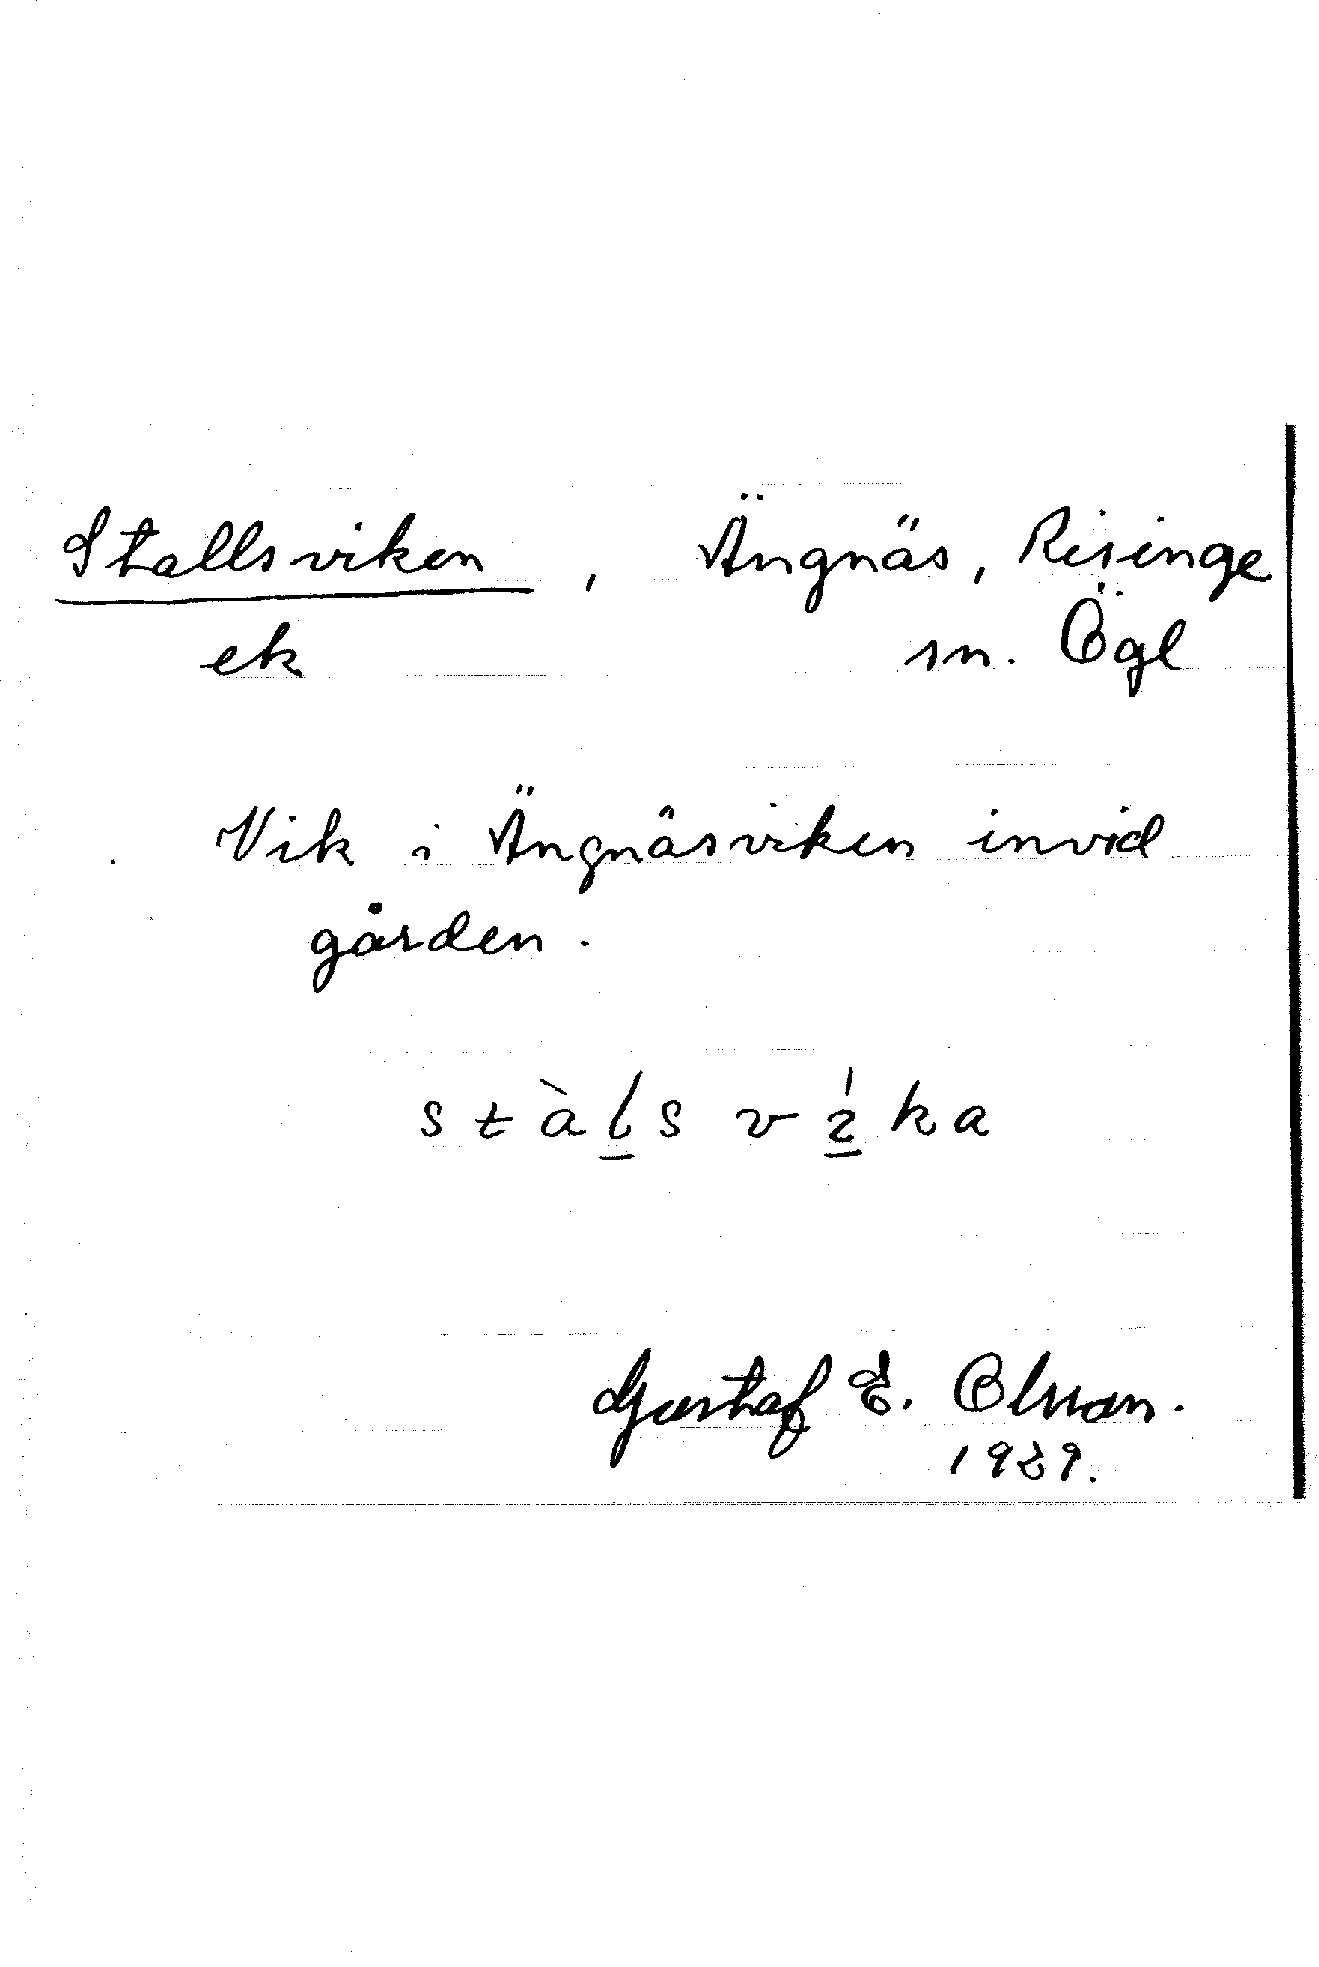 Stallsviken, Ängnäs, Risinge
ek sn. Ögl
Vik i Ängnäsviken invid
gården.
stàl̲s vı̲́ka
Gustaf E. Olsson.
1929.